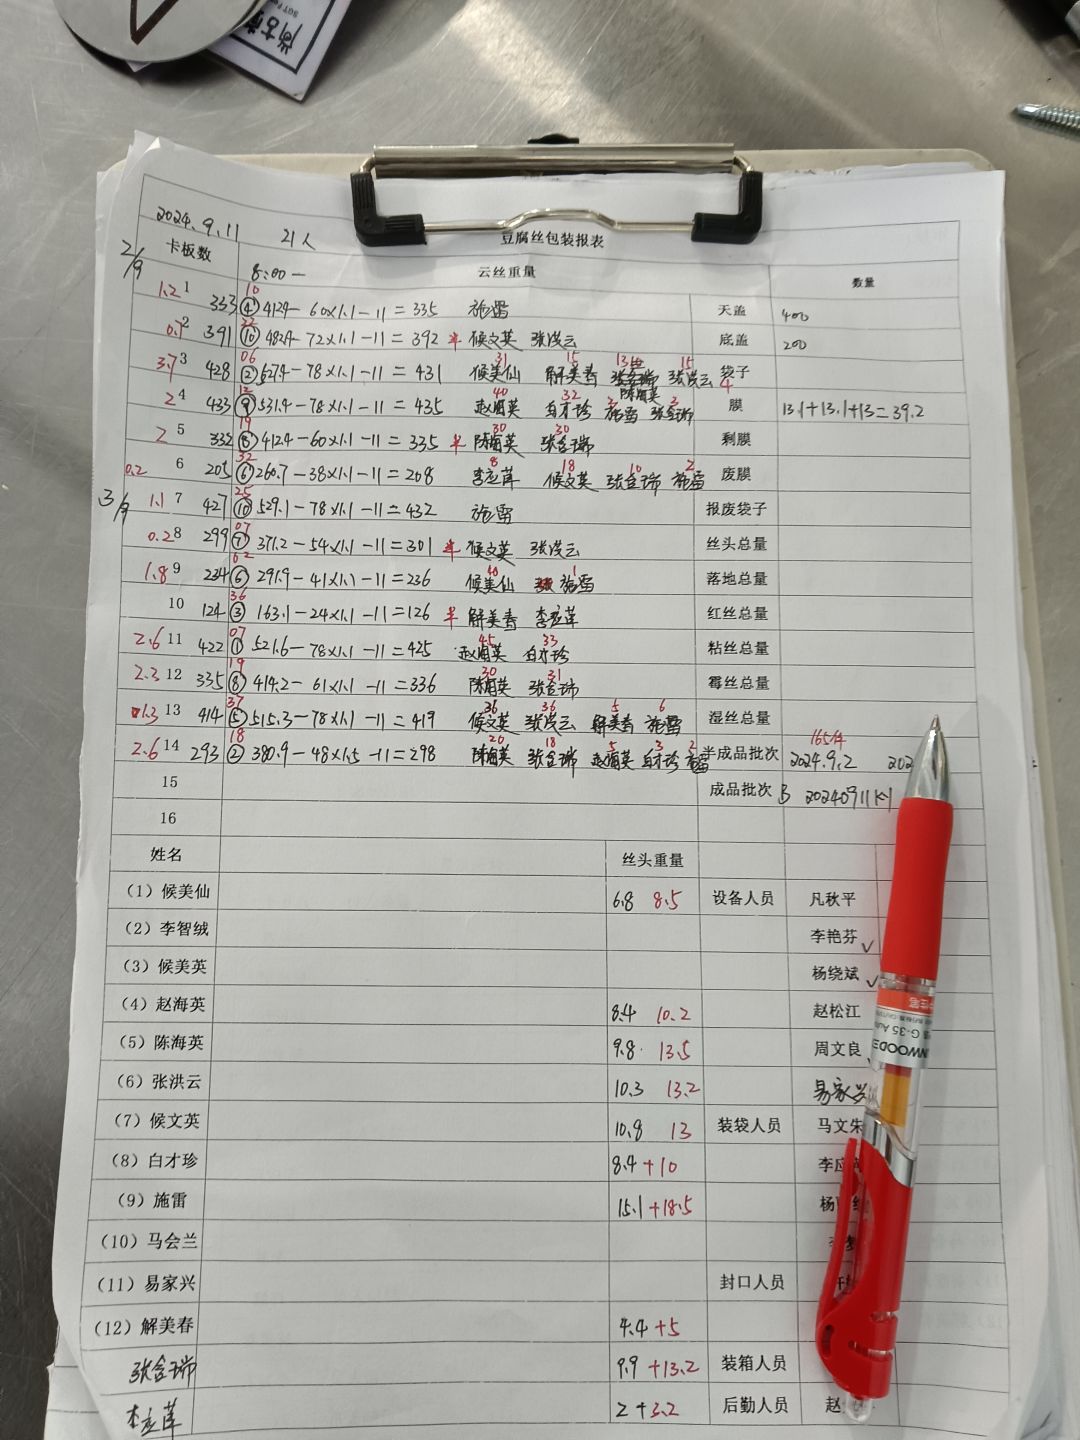 尚古
2024.9.11 21人 豆腐丝包装报表
2/9 卡板数 8:00— 云丝重量 数量
1.2 1 333 10 ④ 412.4-60×1.1-11=335 施雷 天盖 400
0.7 2 391 22 ⑩ 482.4-72×1.1-11=392 半 候文英 张洪云 底盖 200
31 15 13 15
3.7 3 428 06 ② 527.4-78×1.1-11=431 候美仙 解美春 张会瑞 张洪云 4 袋子
陈海英
40 32 2 3
2 4 433 12 ⑨ 531.4-78×1.1-11=435 赵海英 白才珍 施雷 张会瑞 膜 13.1+13.1+13=39.2
30 30
2 5 332 19 ⑧ 412.4-60×1.1-11=335 半 陈海英 张会瑞 剩膜
8 18 10 2
0.2 6 205 32 ⑥ 260.7-38×1.1-11=208 李应莲 候文英 张会瑞 施雷 废膜
3/9 1.1 7 427 25 ⑩ 529.1-78×1.1-11=432 施雷 报废袋子
0.2 8 299 07 ⑦ 371.2-54×1.1-11=301 半 候文英 张洪云 丝头总量
40 1
1.8 9 234 02 ⑥ 291.9-41×1.1-11=236 候美仙 施雷 落地总量
10 124 36 ③ 163.1-24×1.1-11=126 半 解美春 李应莲 红丝总量
45 33
2.6 11 422 07 ① 521.6-78×1.1-11=425 赵海英 白才珍 粘丝总量
30 31
2.3 12 335 19 ⑧ 414.2-61×1.1-11=336 陈海英 张会瑞 霉丝总量
36 36 5 6
1.3 13 414 37 ⑤ 515.3-78×1.1-11=419 候文英 张洪云 解美春 施雷 湿丝总量
20 18 5 3 2 165件
2.6 14 293 18 ② 380.9-48×1.5-11=298 陈海英 张会瑞 赵海英 白才珍 半成品批次 2024.9.2 202
15 成品批次 B 20240911K1
16
姓名 丝头重量
(1) 候美仙 6.8 8.5 设备人员 凡秋平
(2) 李智绒 李艳芬 ✓
(3) 候美英 杨绕斌 ✓
(4) 赵海英 8.4 10.2 赵松江
(5) 陈海英 9.8 13.5 周文良
(6) 张洪云 10.3 13.2 易家兴
(7) 候文英 10.8 13 装袋人员 马文朱
(8) 白才珍 8.4+10 李应
(9) 施雷 15.1+18.5 杨
(10) 马会兰
(11) 易家兴 封口人员
(12) 解美春 4.4+5
张会瑞 9.9+13.2 装箱人员
李应莲 2+3.2 后勤人员 赵